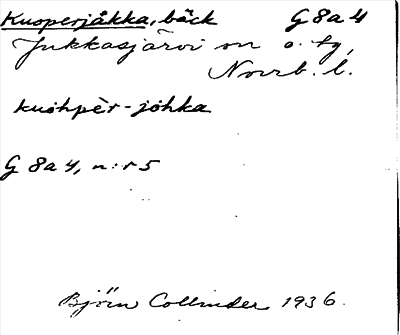 Kuoperjåkka, bäck G 8 a 4
Jukkasjärvi sn o. tg,
Norrb. l.
kuohpèr-johka
G 8 a 4, n:r 5
Björn Collinder 1936.